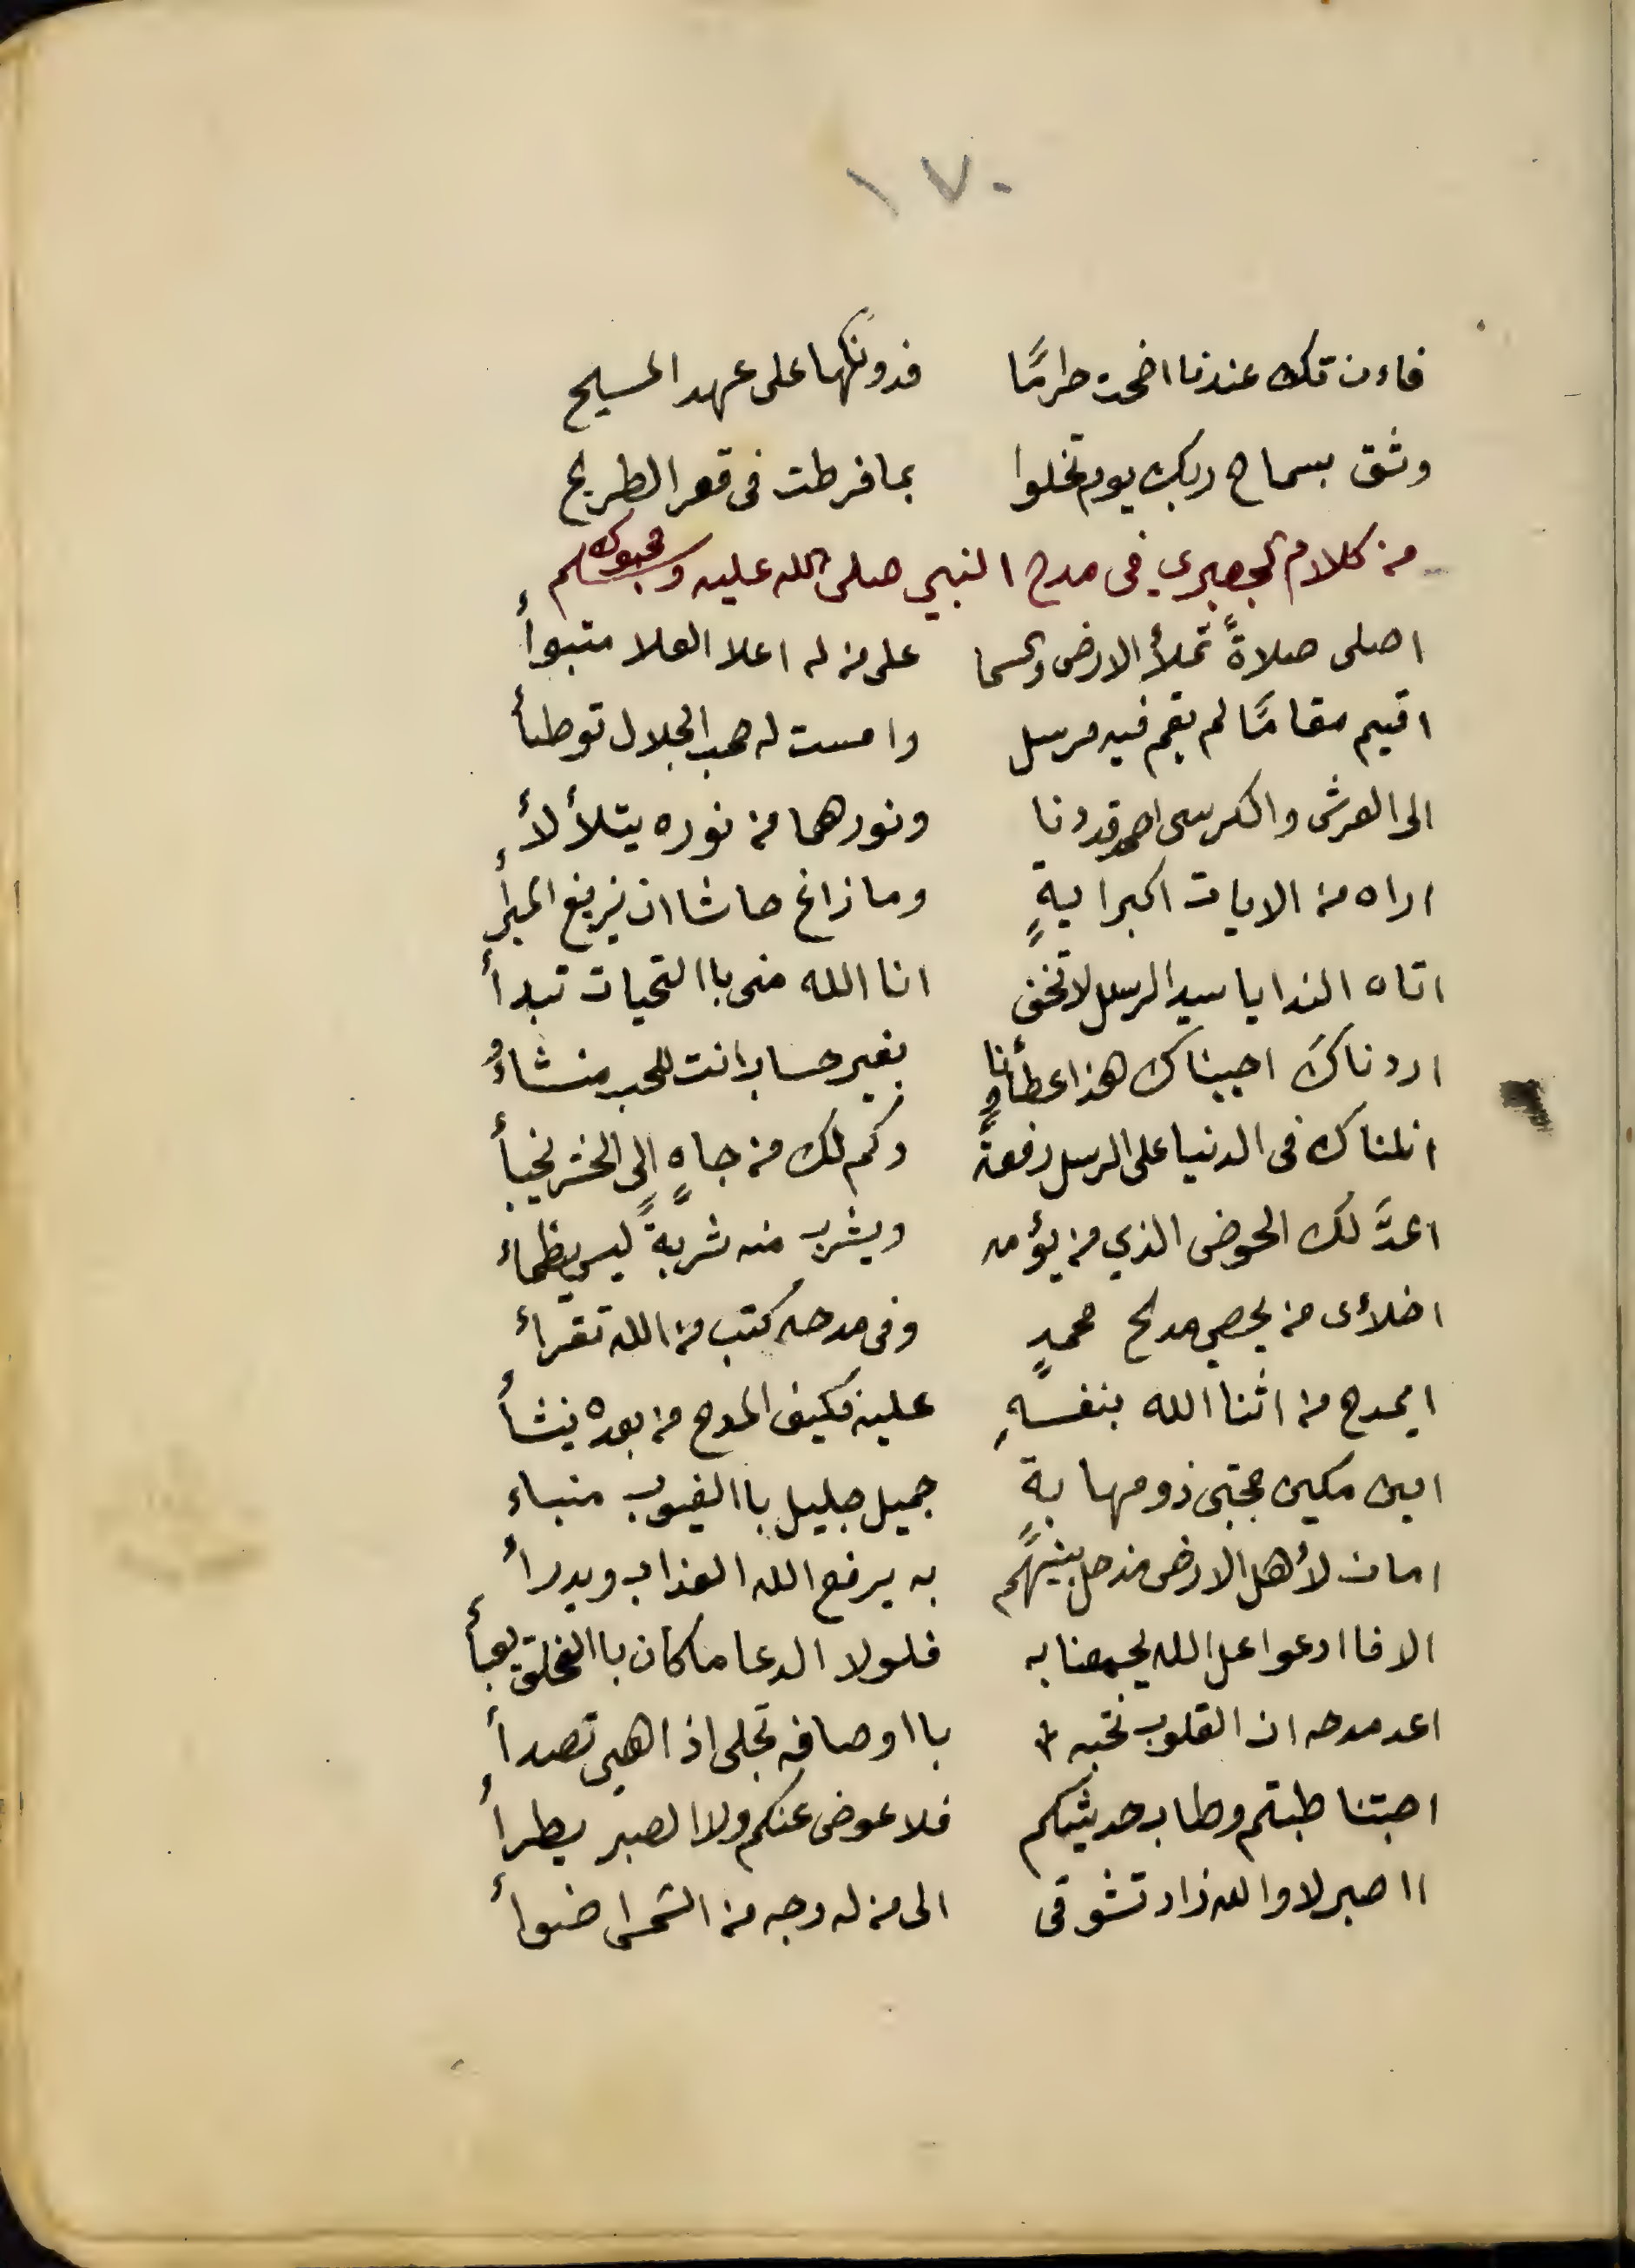 ١٧٠
فاءن تك عندنا اضحت حرامًا فدونكها على عهد المسيح
وثق بسماح ربك يوم تخلوا بما فرطت فى قعر الطريح
من كلام الجعبري فى مدح النبي صلى الله عليه وسلم محبوك
اصلى صلاةً تملأ الارض والسما على من له اعلا العلا متبوأ
اقيم مقامًا لم يقم فيه مرسل وامست له حجب الجلال توطأ
الى العرش والكرسى احمد قد دنا ونورهما من نوره يتلألأ
اراه من الايات اكبر ايةٍ وما زاغ حاشا ان يزيغ المبرأ
اتاه الندا يا سيد الرسل لا تخف انا الله منى باالتحيات تبدأ
اردناك احبيناك هذا عطأونا بغير حساب انت للحب منشاءُ
انلناك فى الدنيا على الرسل رفعةً وكم لك من جاهٍ إلى الحشر يخبأ
اعدَّ لك الحوض الذي من يؤمه ويشرب منه شربةً ليس يظماء
اخلأى من يحصي مديح محمدٍ وفى مدحه كتب من الله تقراء
ايمدح من اثنا الله بنفسهِ عليه فكيف المدح من بعده ينشأ
امين مكين مجتبى ذو مهابةٍ جميل جليل باالغيوب منباء
امان لأهل الارض مذ حل بينهم به يرفع الله العذاب ويدرأ
الا فاادعوا عل الله يجمعنا به فلولا الدعا ما كان باالخلق يعبأ
اعد مدحه ان القلوب تحبه بااوصافه تجلى اذا هي تصدأ
احبتنا طبتم وطاب حديثكم فلا عوض عنكم ولا الصبر يطرأ
ااصبر لا والله زاد تشوقى الى من له وجه من الشمس اضوأ